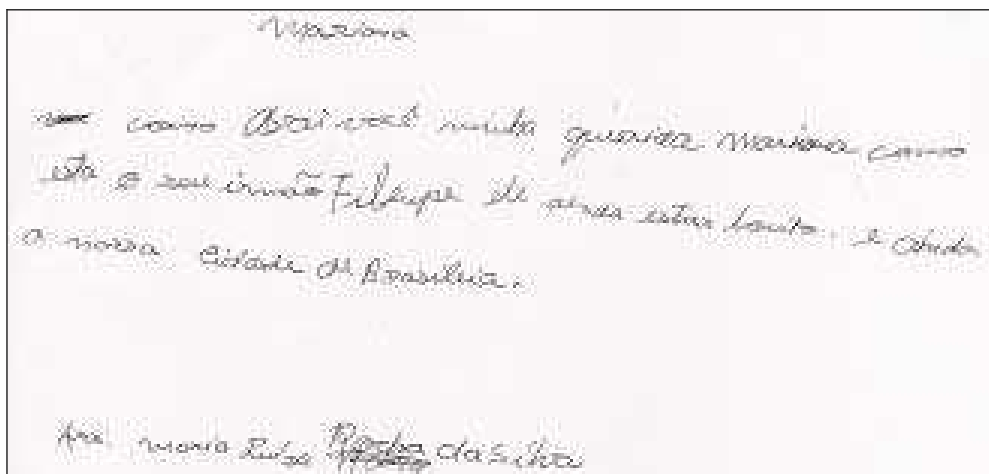 Mariana
como está você minha querida Mariana como
esta o seu irmão Fileupe ele deve estar bonito. e ainda
a nossa cidade de Brasileia.
Ana maria da Silva